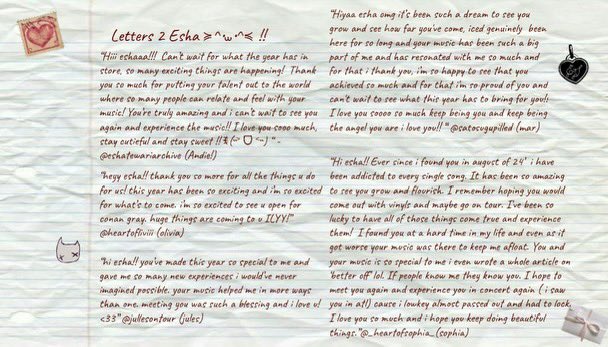 Letters 2 Esha ≽^•⩊•^≼ !!
"Hiii eshaaa!!! Can't wait for what the year has in
store, so many exciting things are happening! Thank
you so much for putting your talent out to the world
where so many people can relate and feel with your
music! You're truly amazing and i can't wait to see you
again and experience the music!! I love you sooo much,
stay cutieful and stay sweet !!
@eshatewariarchive (Andie!)
"heyy esha!! thank you so more for all the things u do
for us! this year has been so exciting and i'm so excited
for what's to come. i'm so excited to see u open for
conan gray. huge things are coming to u ILYY!"
@heartofliviii (olivia)
"hi esha!! you've made this year so special to me and
gave me so many new experiences i would've never
imagined possible. your music helped me in more ways
than one. meeting you was such a blessing and i love u!
<33" @jullesontour (jules)
"Hiyaa esha omg it's been such a dream to see you
grow and see how far you've come, iced genuinely been
here for so long and your music has been such a big
part of me and has resonated with me so much and
for that i thank you, i'm so happy to see that you
achieved so much and for that im so proud of you and
can't wait to see what this year has to bring for you!!
I love you soooo so much keep being you and keep being
the angel you are i love you!! " @satosugupilled (mar)
"Hi esha!! Ever since i found you in august of 24' i have
been addicted to every single song. It has been so amazing
to see you grow and flourish. I remember hoping you would
come out with vinyls and maybe go on tour. I've been so
lucky to have all of those things come true and experience
them! I found you at a hard time in my life and even as it
got worse your music was there to keep me afloat. You and
your music is so special to me i even wrote a whole article on
'better off' lol. If people know me they know you. I hope to
meet you again and experience you in concert again ( i saw
you in atl) cause i lowkey almost passed out and had to lock.
I love you so much and i hope you keep doing beautiful
things."@_heartofsophia_(sophia)